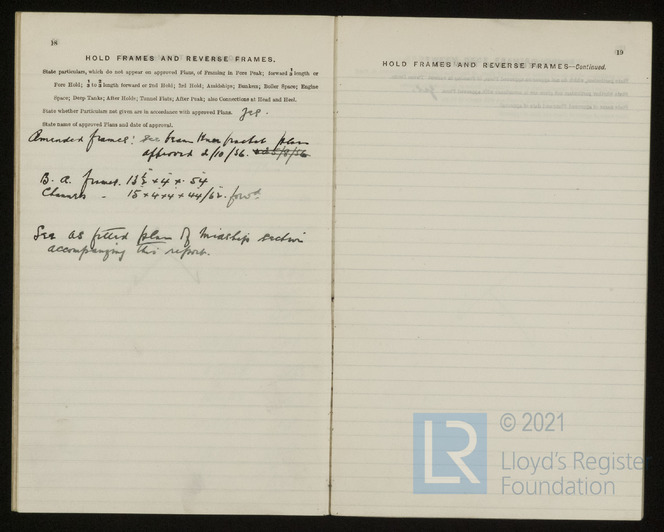 18
HOLD FRAMES AND REVERSE FRAMES.
State particulars, which do not appear on approved Plans, of Framing in Fore Peak; forward ⅕ length or
Fore Hold; to length forward or 2nd Hold; 3rd Hold; Amidships; Bunkers; Boiler Space; Engine
Space; Deep Tanks; After Holds; Tunnel Flats; After Peak; also Connections at Head and Heel.
State whether Particulars not given are in accordance with approved Plans. Yes.
State name of approved Plans and date of approval.
Amended frames: see beam knee bracket plan
approved 2/10/36.
B. A. frames. 13½ × 4 × .54
Channels - 15 × 4 × 4 × 44/62. forwd
See as fitted plan of midship section
accompanying this report.
19
HOLD FRAMES AND REVERSE FRAMES—Continued.
LR
© 2021
Lloyd's Register
Foundation